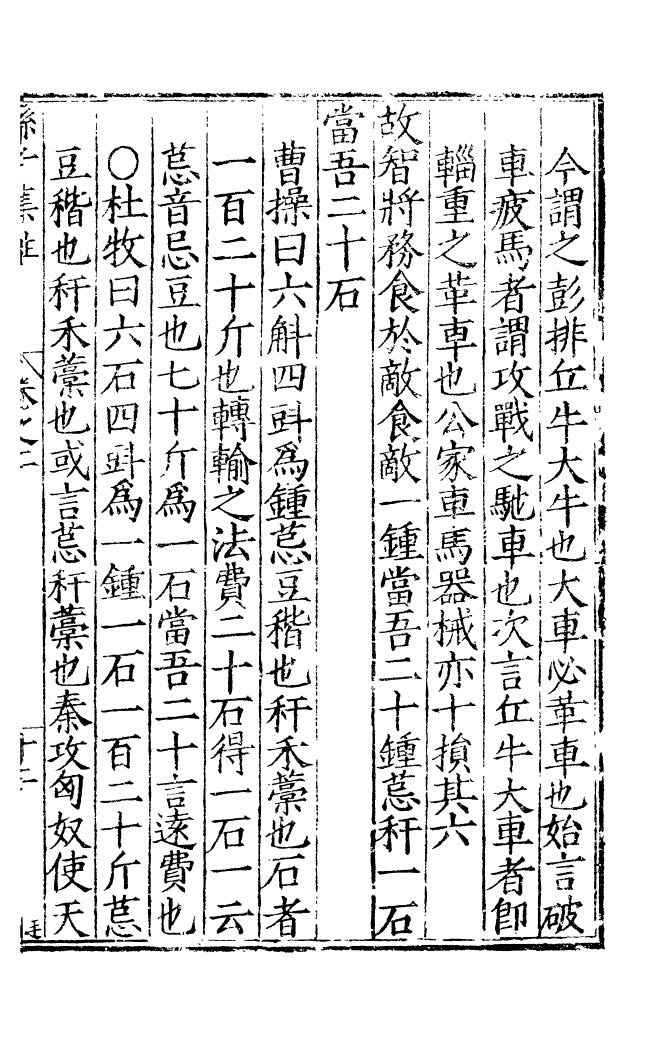 今謂之彭排丘牛大牛也大車必革車也始言破
車疲馬者謂攻戰之馳車也次言丘牛大車者即
輜重之革車也公家車馬器械亦十損其六
故智將務食於敵食敵一鍾當吾二十鍾䓗秆一石
當吾二十石
曹操曰六斛四㪷爲鍾䓗豆稭也秆禾藁也石者
一百二十斤也轉輸之法費二十石得一石一云
䓗音忌豆也七十斤爲一石當吾二十言遠費也
○杜牧曰六石四㪷爲一鍾一石一百二十斤䓗
豆稭也秆禾藁也或言䓗秆藁也秦攻匈奴使天
孫子集註
卷之二
十二